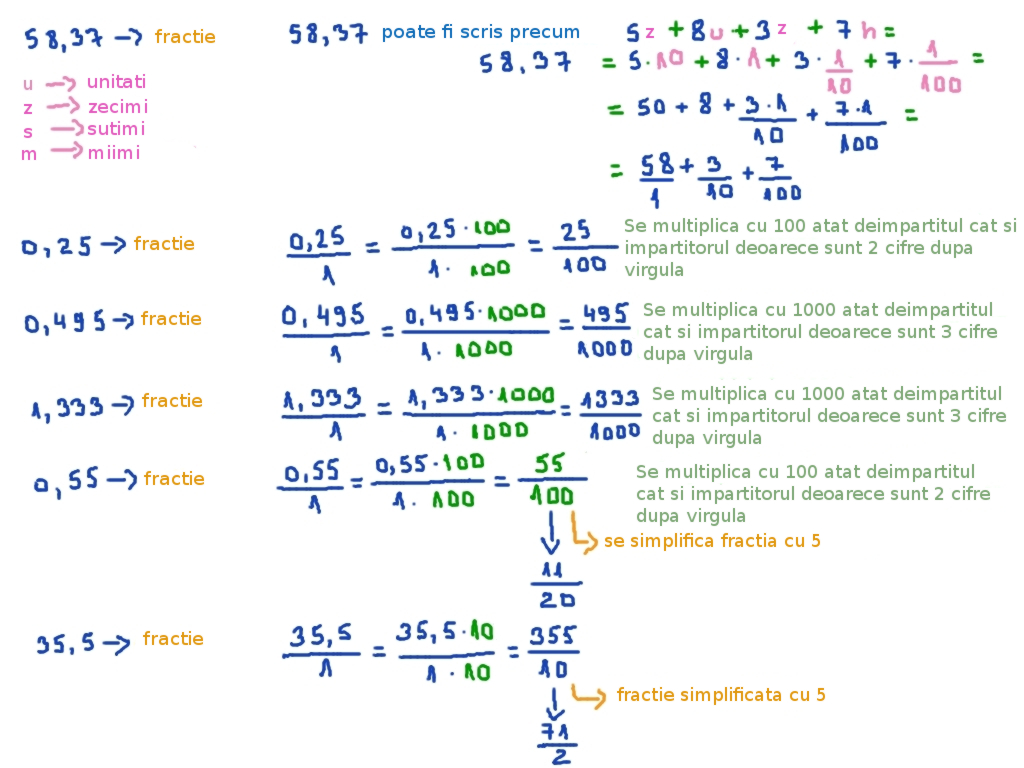 58,37 → fractie
58,37 poate fi scris precum 5z + 8u + 3z + 7h =
58,37 = 5·10 + 8·1 + 3·1/10 + 7·1/100 =
= 50 + 8 + 3·1/10 + 7·1/100 =
= 58/1 + 3/10 + 7/100
u → unitati
z → zecimi
s → sutimi
m → miimi
0,25 → fractie
0,25/1 = 0,25·100/1·100 = 25/100
Se multiplica cu 100 atat deimpartitul cat si
impartitorul deoarece sunt 2 cifre dupa
virgula
0,495 → fractie
0,495/1 = 0,495·1000/1·1000 = 495/1000
Se multiplica cu 1000 atat deimpartitul
cat si impartitorul deoarece sunt 3 cifre
dupa virgula
1,333 → fractie
1,333/1 = 1,333·1000/1·1000 = 1333/1000
Se multiplica cu 1000 atat deimpartitul
cat si impartitorul deoarece sunt 3 cifre
dupa virgula
0,55 → fractie
0,55/1 = 0,55·100/1·100 = 55/100
Se multiplica cu 100 atat deimpartitul
cat si impartitorul deoarece sunt 2 cifre
dupa virgula
se simplifica fractia cu 5
11/20
35,5 → fractie
35,5/1 = 35,5·10/1·10 = 355/10
fractie simplificata cu 5
71/2